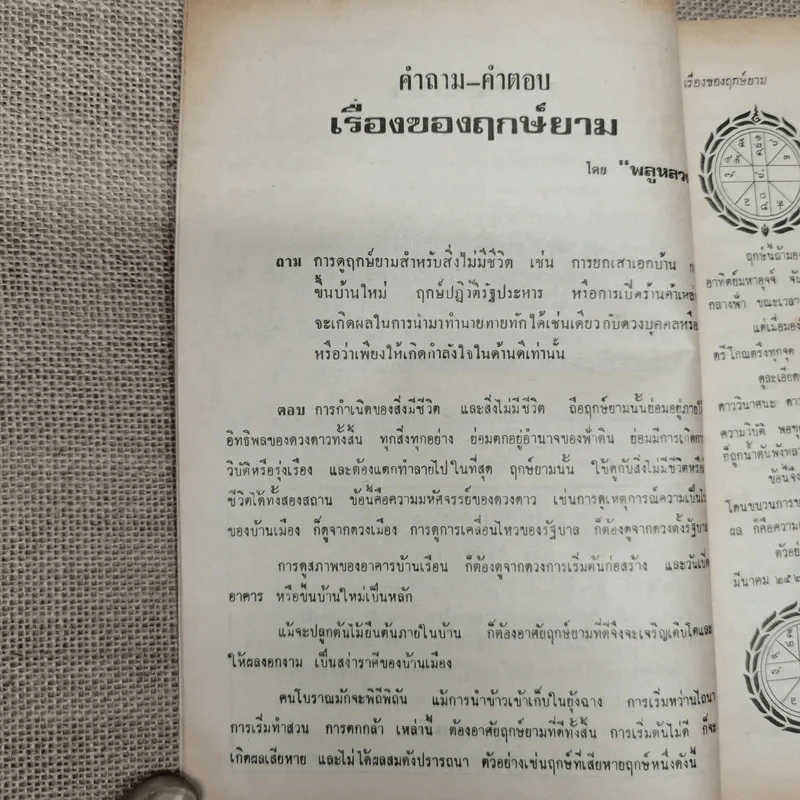 คำถาม-คำตอบ
เรื่องของฤกษ์ยาม
โดย "พลูหลวง
ถาม การดูฤกษ์ยามสำหรับสิ่งไม่มีชีวิต เช่น การยกเสาเอกบ้าน
ขึ้นบ้านใหม่ ฤกษ์ปฏิวัติรัฐประหาร หรือการเปิดร้านค้าเหล่
จะเกิดผลในการนำมาทำนายทายทักได้เช่นเดียวกับดวงบุคคลหรือ
หรือว่าเพียงให้เกิดกำลังใจในด้านดีเท่านั้น
ตอบ การกำเนิดของสิ่งมีชีวิต และสิ่งไม่มีชีวิต ถือฤกษ์ยามนั้นย่อมอยู่ภายใ
อิทธิพลของดวงดาวทั้งสิ้น ทุกสิ่งทุกอย่าง ย่อมตกอยู่อำนาจของฟ้าดิน ย่อมมีการเกิดกา
วิบัติหรือรุ่งเรือง และต้องแตกทำลายไปในที่สุด ฤกษ์ยามนั้น ใช้ดูกับสิ่งไม่มีชีวิตหรือ
ชีวิตได้ทั้งสองสถาน ข้อนี้คือความมหัศจรรย์ของดวงดาว เช่นการดูเหตุการณ์ความเป็นไ
ของบ้านเมือง ก็ดูจากดวงเมือง การดูการเคลื่อนไหวของรัฐบาล ก็ต้องดูจากดวงตั้งรัฐบา
การดูสภาพของอาคารบ้านเรือน ก็ต้องดูจากดวงการเริ่มต้นก่อสร้าง และวันเปิด
อาคาร หรือขึ้นบ้านใหม่เป็นหลัก
แม้จะปลูกต้นไม้ยืนต้นภายในบ้าน ก็ต้องอาศัยฤกษ์ยามที่ดีจึงจะเจริญเติบโตและ
ให้ผลงอกงาม เป็นสง่าราศีของบ้านเมือง
คนโบราณมักจะพิถีพิถัน แม้การนำข้าวเข้าเก็บในยุ้งฉาง การเริ่มหว่านไถนา
การเริ่มทำสวน การตกกล้า เหล่านี้ ต้องอาศัยฤกษ์ยามที่ดีทั้งสิ้น การเริ่มต้นไม่ดี ก็จะ
เกิดผลเสียหาย และไม่ได้ผลสมดังปรารถนา ตัวอย่างเช่นฤกษ์ที่เสียหายฤกษ์หนึ่งดังนี้
เรื่องของฤกษ์ยาม
ฤกษ์นี้ถ้ามอง
อาทิตย์มหาอุจจ์ จัน
กลางฟ้า ขณะเวลา
แต่เมื่อมอง
ตรีโกณตรึงทุกจุด
ดูละเอียด
ดาววินาศนะ ดา
ความวิบัติ พอขุ
ก็ถูกน้ำดันพังทลา
ข้อนี้จึง
โดนขบวนการข
ผล ก็คือความ
ตัวอย่
มีนาคม ๒๕๒